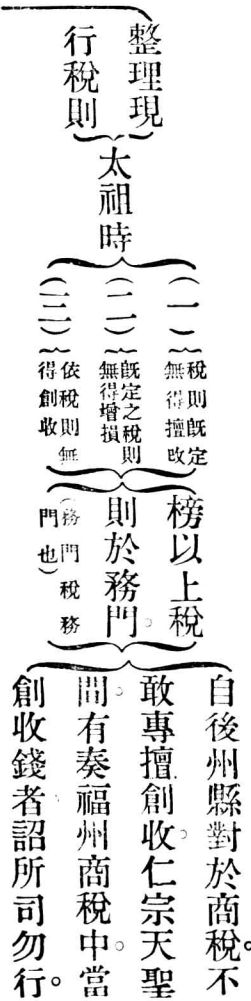 整理現
行稅則
太祖時
(一)
稅則既定
無得擅改
(二)
既定之稅則
無得增損
(三)
依稅則無
得創收
榜以上稅
則於務門。
(務門稅務
門也)
自後州縣對於商稅不
敢專擅創收。仁宗天聖
間。有奏福州商稅中。當
創收錢者詔所司勿行。